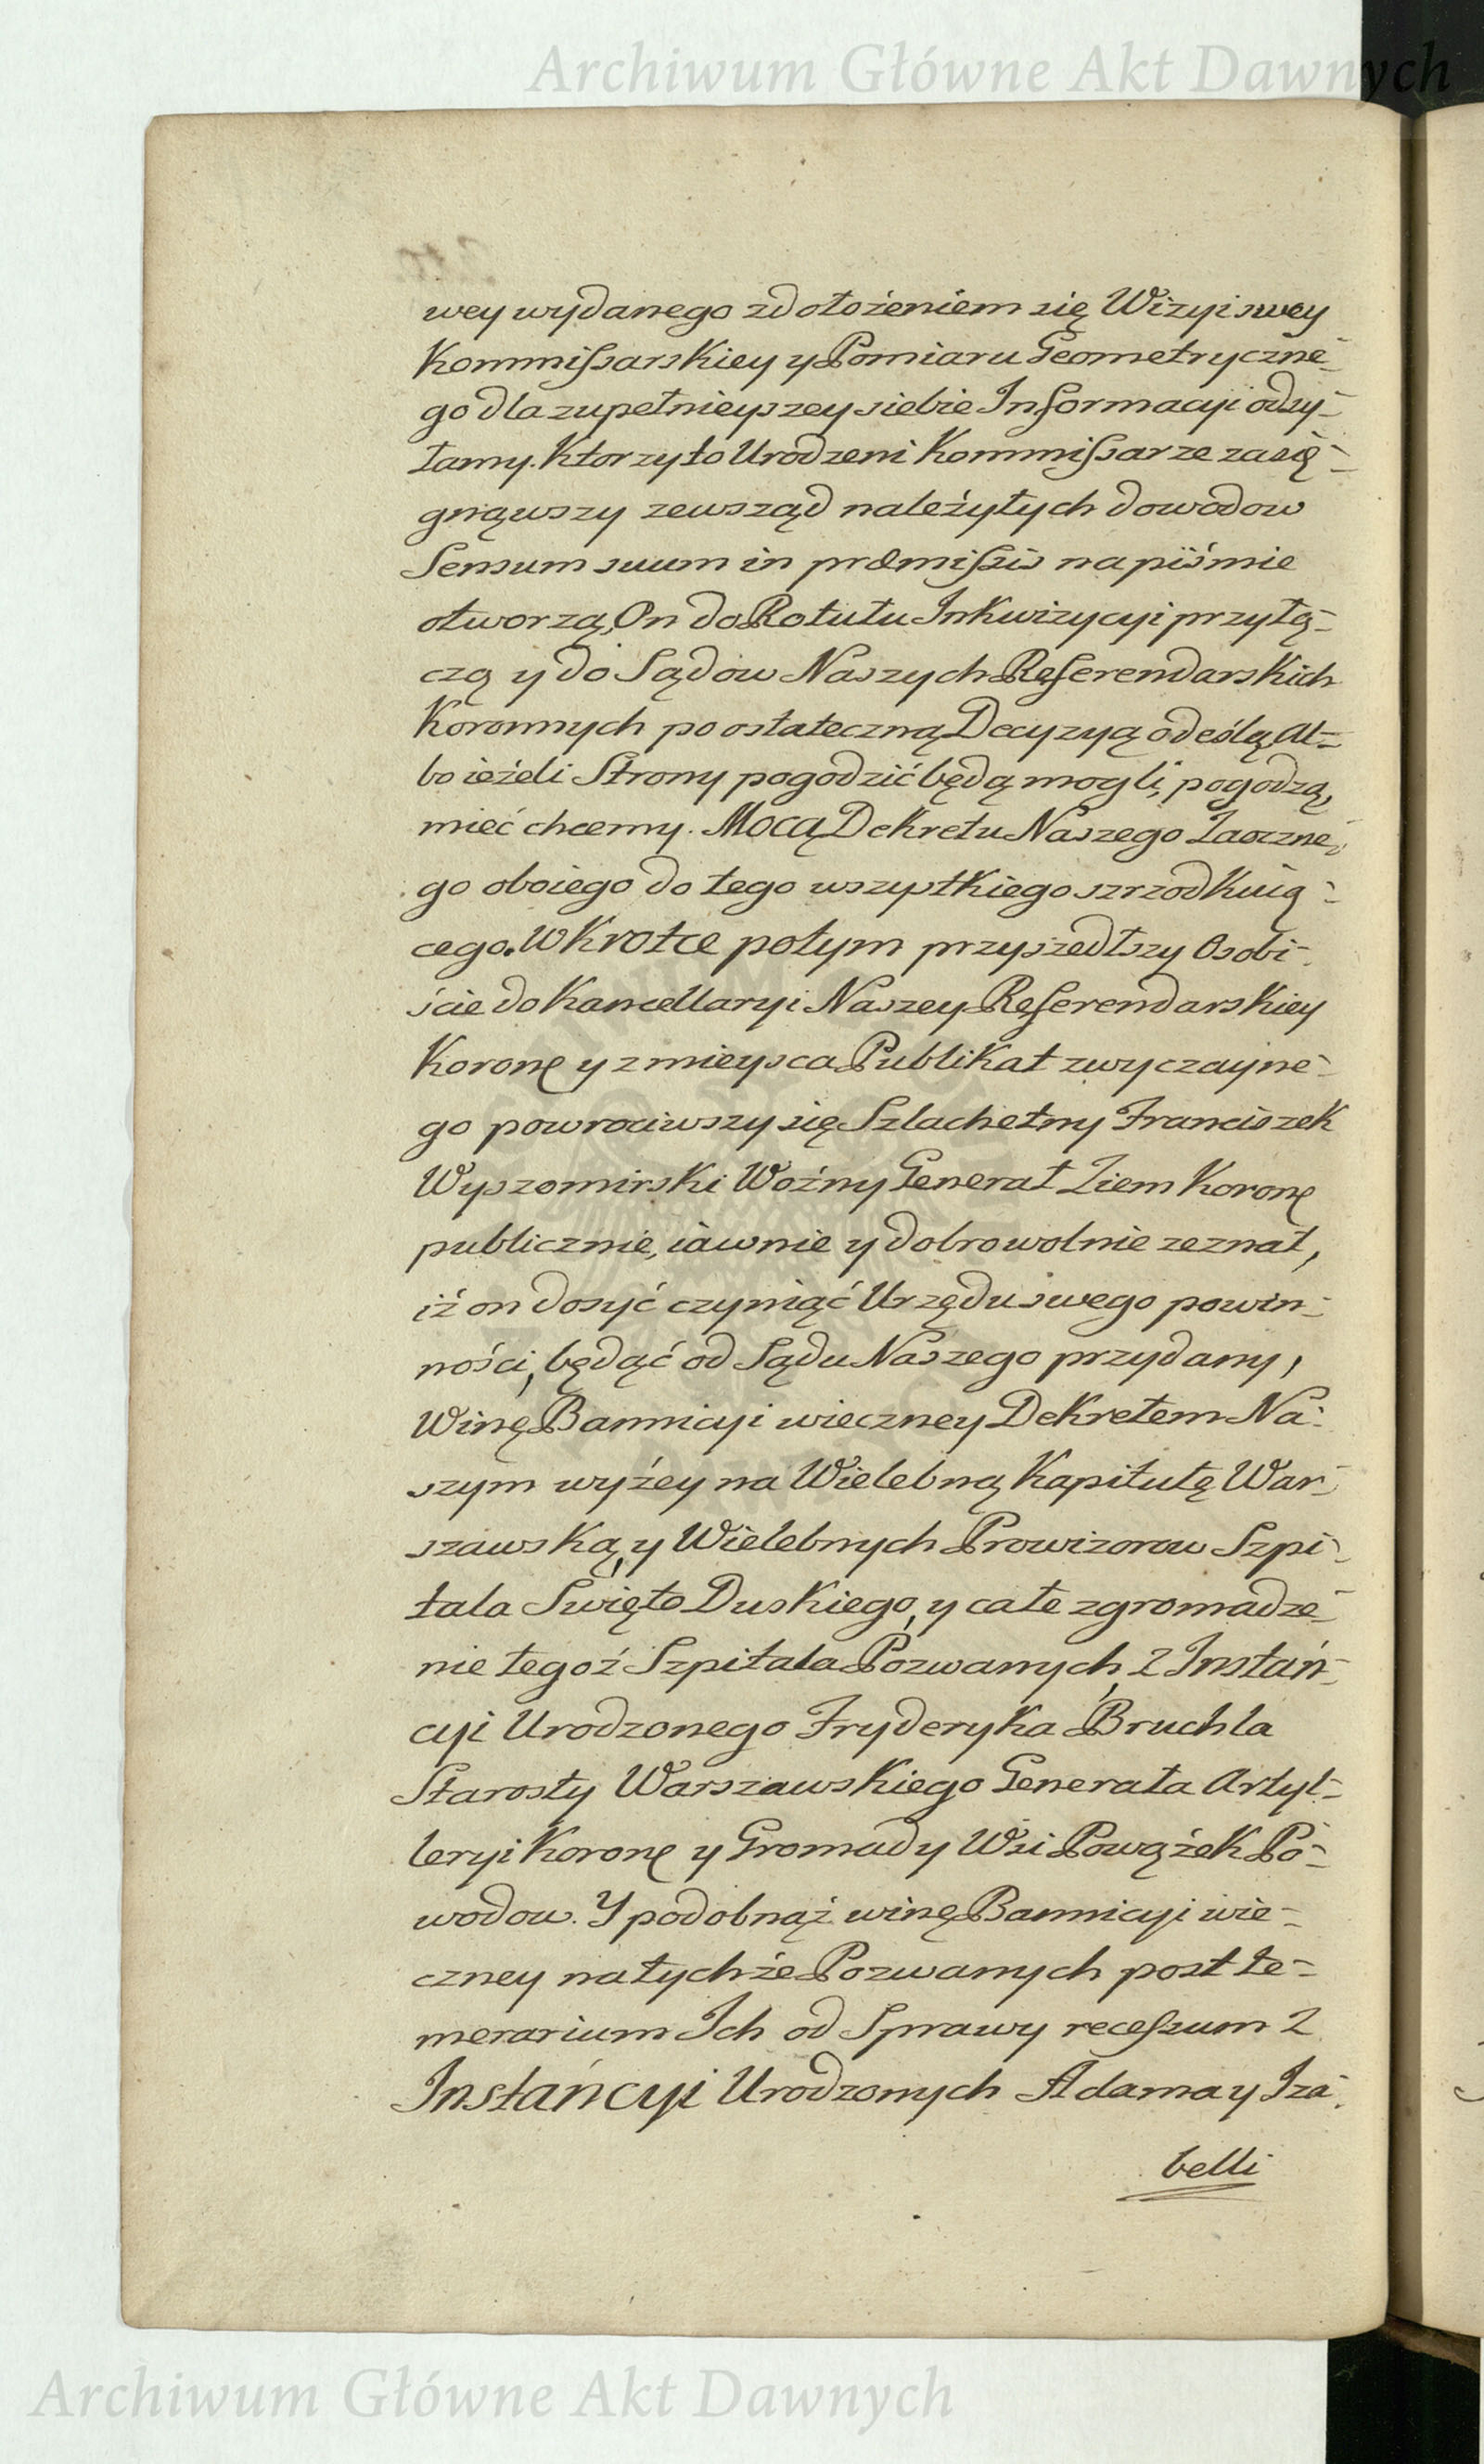 Archiwum Główne Akt Dawnych
wey wydanego zdołożeniem się Wizyi swey
Kommissarskiey y Pomiaru Geometryczne-
go dla zupełnieyszey siebie Informacyi odsy-
łamy. Ktorzy to Urodzeni Kommissarze zasię-
gnąwszy zewsząd należytych dowodow
Sensum suum in præmissis na piśmie
otworzą, On do Rotułu Inkwizycyi przyłą-
czą y do Sądow Naszych Referendarskich
Koronnych po ostateczną Decyzyą odeślą, Al-
bo ieżeli Strony pogodzić będą mogli, pogodzą,
mieć chcemy. Mocą Dekretu Naszego Zaoczne-
go oboiego do tego wszystkiego szrzodkuią-
cego. Wkrotce potym przyszedłszy Osobi-
ście do Kancellaryi Naszey Referendarskiey
Koronę y z mieysca Publikat zwyczayne-
go powrociwszy się Szlachetny Franciszek
Wyszomirski Woźny Generał Ziem Koronę
publicznie, iawnie y dobrowolnie zeznał,
iż on dosyć czyniąć Urzędu swego powin-
ności, będąć od Sądu Naszego przydany,
Winę Bannicyi wieczney Dekretem Na-
szym wyżey na Wielebną Kapitułę War-
szawską, y Wielebnych Prowizorow Szpi-
tala Swięto Duskiego, y całe zgromadze-
nie tegoż Szpitala Pozwanych, z Instań-
cyi Urodzonego Fryderyka Bruchla
Starosty Warszawskiego Generała Artyl-
leryi Koronę y Gromady Wsi Powązek Po-
wodow. Y podobnąż winę Bannicyi wie-
czney na tychże Pozwanych post te-
merarium Ich od Sprawy recessum z
Instańcyi Urodzonych Adama y Iza-
belli
Archiwum Główne Akt Dawnych